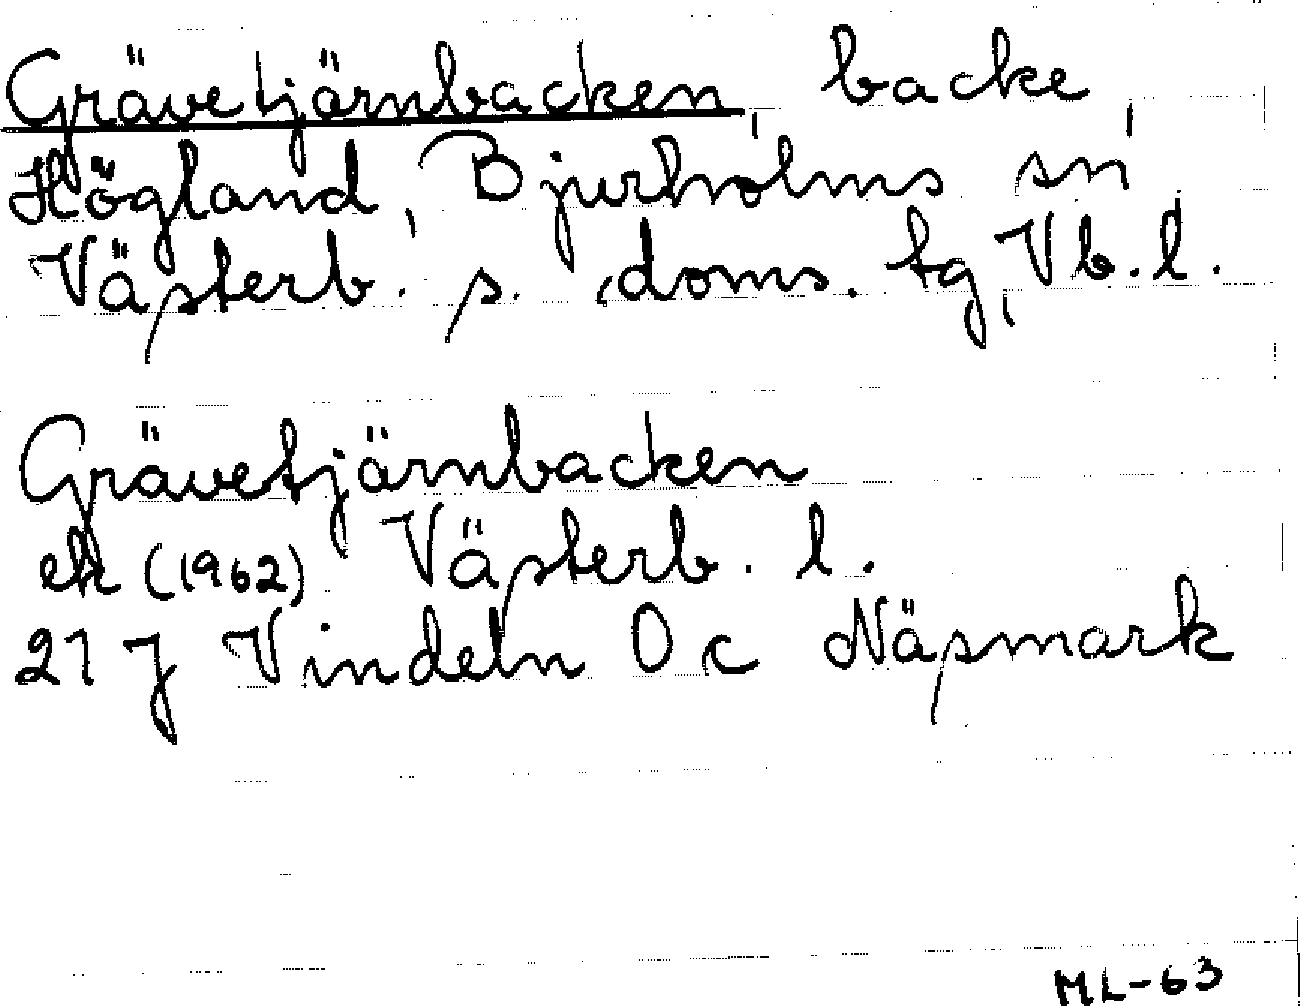 Grävetjärnbacken, backe,
Högland, Bjurholms sn
Västerb. s. doms. tg, Vb. l.
Grävetjärnbacken
ek (1962) Västerb. l.
21 J Vindeln 0 c Näsmark
ML-63